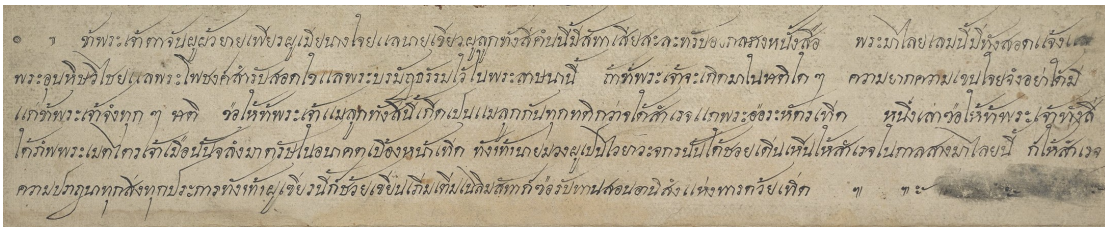 ๏ ๚ ข้าพระเจ้าตาจันผูผัวยายเพียรผูเมียนางไจยแลนายเขียวผูลูกทังสี่คํปนี้มีสัทาเสียสะละทรับ ส่างหนั้งสือ พระมาไลยเลมนี้มีทังสอดแจ้ง
พระอุนหิษวิไชยแลพระโพชงค์สำรับสอดไจแลพระบรมัฎธรรมไว้ไนพระสาษนานี้ ถ้าข้าพระเจ้าจะเกิดมาไนชาติไดๆ ความยากความเขนไจยจึงอย่าได้มี
แก่ข้าพระเจ้าจํงทุกๆ ชาติ ขํอให้ข้าพระเจ้าแมลูกทังสี่นี้เกิดเปนแมลูกกันทุกชาติกว่าจได้สำเรจแกพระอํอระหัตรเทิด หนึ่งเล่าขํอให้ข้าพระเจ้าทังสี่
ได้ภํพพระเมตไตรเจ้าเมื่อนั้นจลํงมาตรัษไนอนาคตเบืองหน้าเทิด ทังข้านายมวงผูเปนไวยาวะจกรนั้นได้ชวยเดินเหีนให้สำเรจไนการส่างมาไลยนี้ ก็ให้สำเรจ
ความปรารถนาทุกสิ่งทุกประการทังข้าผูเขียรนี้ก็ช้วยเขียนเภีมเตีมเฉลิมสัทาก็ขํอรับทานสอนอานิสํงแห่งทารด้วยเทิด ๚ ๚ะ